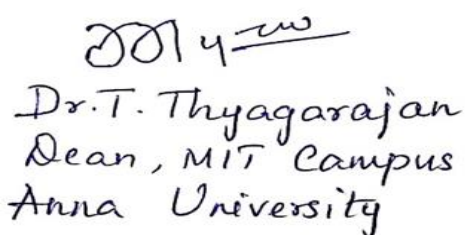 Dr. T. Thyagarajan
Dean, MIT Campus
Anna University